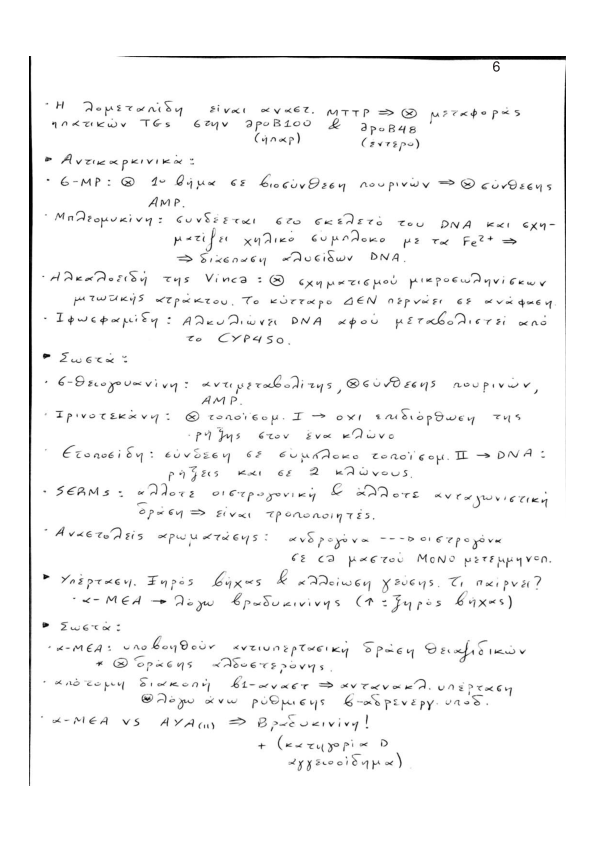 6
· Η λομεταπίδη είναι αναστ. MTTP ⇒ ⊗ μεταφοράς
ηπατικών TGs στην apoB100 & apoB48
(ήπαρ) (έντερο)
► Αντικαρκινικά:
· 6-MP: ⊗ 1ο βήμα σε βιοσύνθεση πουρινών ⇒ ⊗ σύνθεσης
AMP.
· Μπλεομυκίνη: συνδέεται στο σκελετό του DNA και σχη-
ματίζει χηλικό σύμπλοκο με τα Fe²⁺ ⇒
⇒ διάσπαση αλυσίδων DNA.
· Αλκαλοειδή της Vinca: ⊗ σχηματισμού μικροσωληνίσκων
μιτωτικής ατράκτου. Το κύτταρο ΔΕΝ περνάει σε ανάφαση.
· Ιφωσφαμίδη: Αλκυλιώνει DNA αφού μεταβολιστεί από
το CYP450.
► Σωστά:
· 6-θειογουανίνη: αντιμεταβολίτης, ⊗σύνθεσης πουρινών,
AMP.
· Ιρινοτεκάνη: ⊗ τοποϊσομ. I → οχι επιδιόρθωση της
ρήξης στον ένα κλώνο
· Ετοποσίδη: σύνδεση σε σύμπλοκο τοποϊσομ. II → DNA:
ρήξεις και σε 2 κλώνους.
· SERMs: άλλοτε οιστρογονική & άλλοτε ανταγωνιστική
δράση ⇒ είναι τροποποιητές.
· Αναστολείς αρωματάσης: ανδρογόνα ---> οιστρογόνα
σε ca μαστού ΜΟΝΟ μετεμμηνοπ.
► Υπέρταση. Ξηρός βήχας & αλλοίωση γεύσης. Τι παίρνει?
· α-ΜΕΑ → λόγω βραδυκινίνης (↑ = ξηρός βήχας)
► Σωστά:
· α-ΜΕΑ: υποβοηθούν αντιυπερτασική δράση θειαζιδικών
* ⊗ δράσης αλδοστερόνης.
· απότομη διακοπή β1-αναστ ⇒ αντανακλ. υπέρταση
⊗ λόγω άνω ρύθμισης β-αδρενεργ. υποδ.
· α-ΜΕΑ VS ΑΥΑ(II) ⇒ Βραδυκινίνη!
+ (κατηγορία D
αγγειοοίδημα)